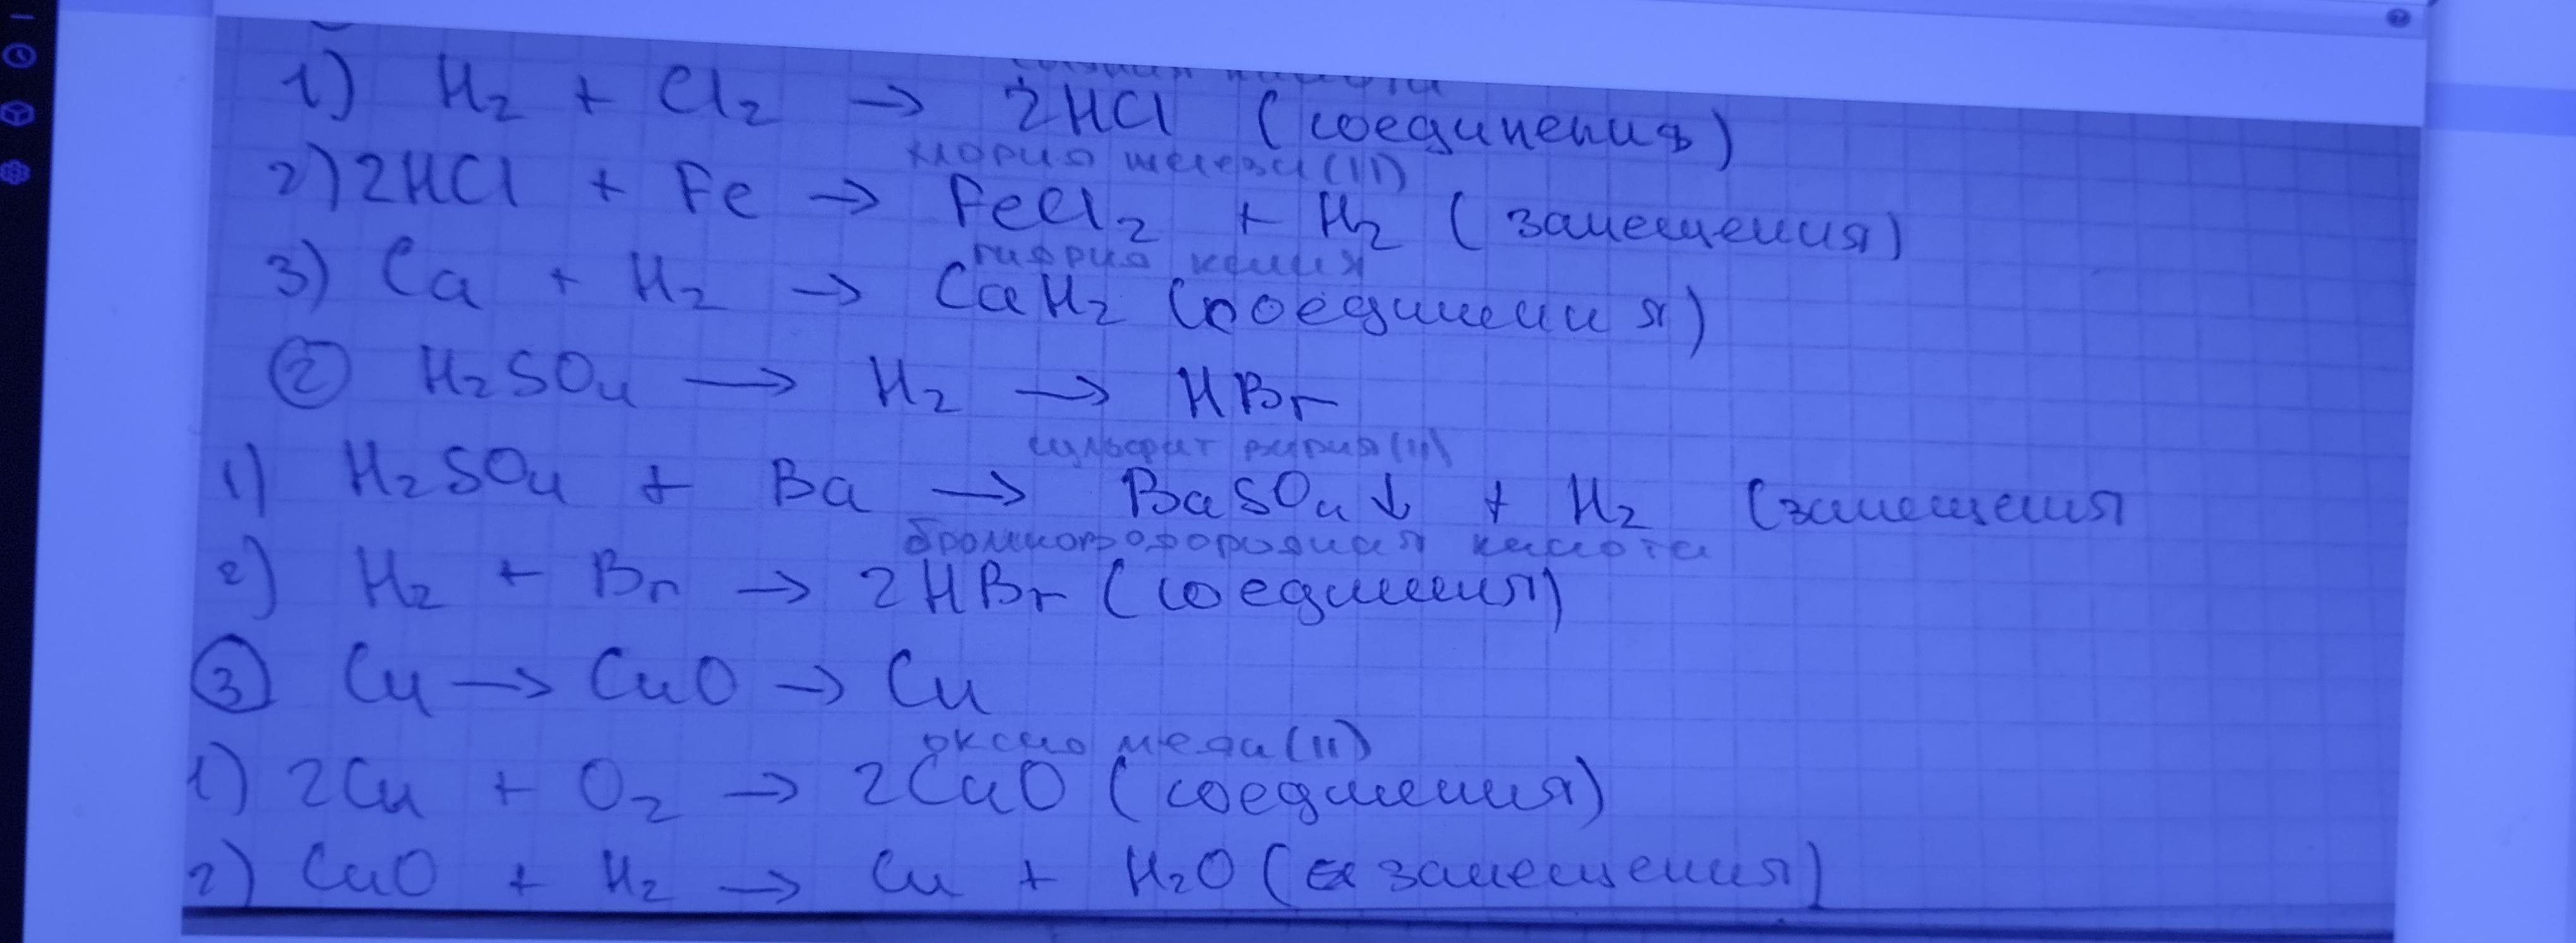 1) H₂ + Cl₂ → 2HCl (соединения)
хлорид железа (II)
2) 2HCl + Fe → FeCl₂ + H₂ (замещения)
гидрид
3) Ca + H₂ → CaH₂ (соединения)
② H₂SO₄ → H₂ → HBr
сульфат (II)
1) H₂SO₄ + Ba → BaSO₄↓ + H₂ (замещения
кислота
2) H₂ + Br₂ → 2HBr (соединения)
③ Cu → CuO → Cu
оксид меди (II)
1) 2Cu + O₂ → 2CuO (соединения)
2) CuO + H₂ → Cu + H₂O (замещения)